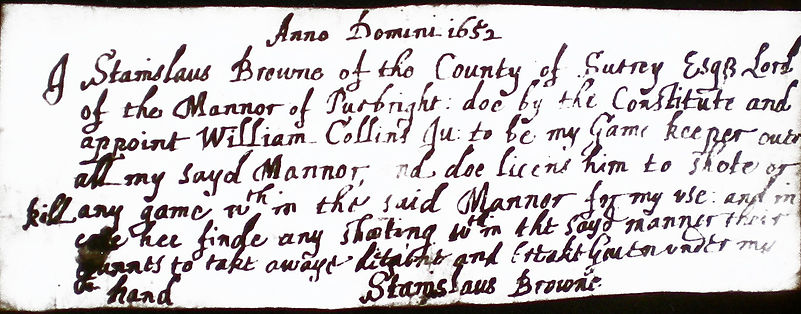 Anno Domini 1652
I Stanislaus Browne of the County of Surrey Esqr Lord
of the Mannor of Purbright: doe by the Constitute and
appoint William Collins Ju: to be my Game keeper over
all my sayd Mannor, and doe licens him to shote or
kill any game wth in the said Mannor for my use: and in
case hee finde any shooting wth in the sayd manner their
gunnes to take awaye and under my
hand Stanislaus Browne